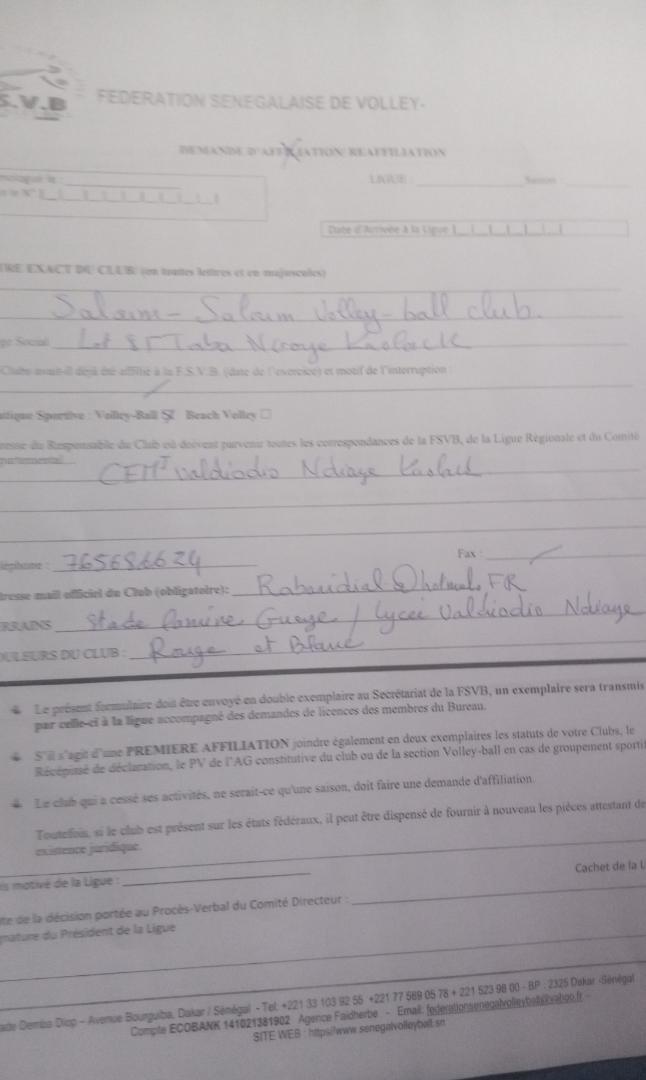 S.V.B
FEDERATION SENEGALAISE DE VOLLEY-
DEMANDE D'AFFILIATION/REAFFILIATION
LIGUE : Saison :
Date d'Arrivée à la Ligue
TRE EXACT DU CLUB: (en toutes lettres et en majuscules)
Saloum - Saloum Volley-ball club.
ge Social Lot Taba Kaolack
Clubs avait-il déjà été affilié à la F.S.V.B. (date de l'exercice) et motif de l'interruption :
atique Sportive : Volley-Ball Beach Volley
resse du Responsable du Club où doivent parvenir toutes les correspondances de la FSVB, de la Ligue Régionale et du Comité
partemental
CEMT Valdiodio Ndiaye Kaolack
léphone : Fax :
resse mail officiel du Club (obligatoire):
RRAINS Stade Lamine Gueye / Lycée Valdiodio Ndiaye
OULEURS DU CLUB : Rouge et Blanc
Le présent formulaire doit être envoyé en double exemplaire au Secrétariat de la FSVB, un exemplaire sera transmis
par celle-ci à la ligue accompagné des demandes de licences des membres du Bureau.
S'il s'agit d'une PREMIERE AFFILIATION joindre également en deux exemplaires les statuts de votre Clubs, le
Récépissé de déclaration, le PV de l'AG constitutive du club ou de la section Volley-ball en cas de groupement sportif
Le club qui a cessé ses activités, ne serait-ce qu'une saison, doit faire une demande d'affiliation.
Toutefois, si le club est présent sur les états fédéraux, il peut être dispensé de fournir à nouveau les pièces attestant de
existence juridique.
is motivé de la Ligue : Cachet de la L
te de la décision portée au Procès-Verbal du Comité Directeur :
nature du Président de la Ligue
ade Demba Diop – Avenue Bourguiba, Dakar / Sénégal - Tel: +221 33 103 92 56 +221 77 569 05 78 + 221 523 98 00 - BP : 2325 Dakar -Sénégal
Compte ECOBANK 141021381902 Agence Faidherbe - Email: federationsenegalvolleyball@yahoo.fr -
SITE WEB : https//www.senegalvolleyball.sn